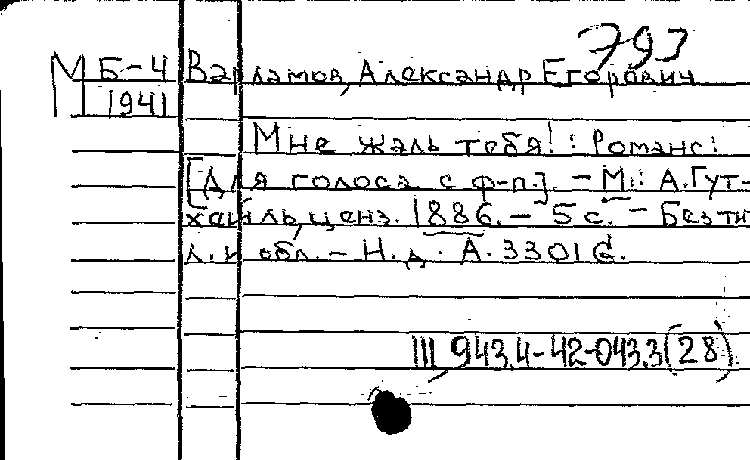 793
М Б-4 Варламов, Александр Егорович
1941
Мне жаль тебя! : Романс :
[Для голоса с ф-п.]. - М.: А.Гут-
хейль, ценз. 1886. - 5 с. - Без тит.
л. и обл. - Н. д. А. 3301 G.
III 943.4-42-043.3(28)